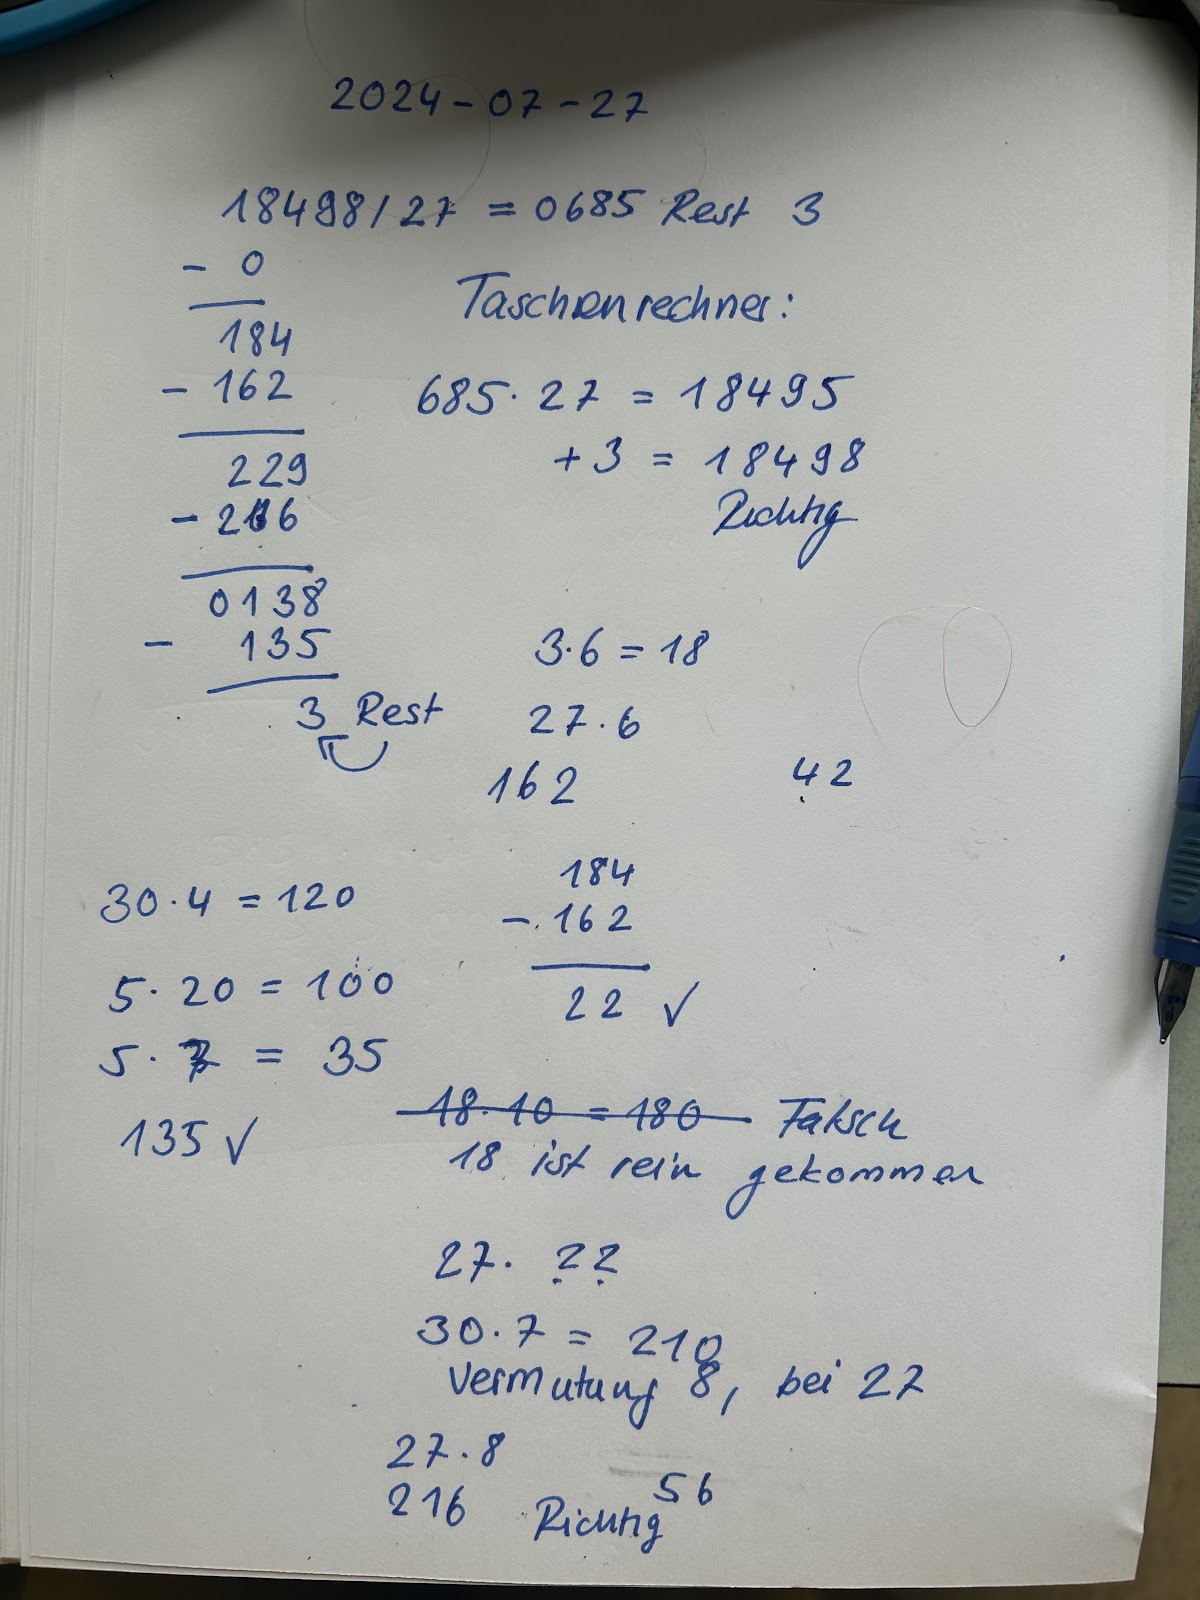 2024-07-27
18498/27 = 0685 Rest 3
- 0
184
- 162
229
- 216
0138
- 135
3 Rest
Taschenrechner:
685 · 27 = 18495
+3 = 18498
Richtig
3·6 = 18
27·6
162
42
184
- 162
22 ✓
30·4 = 120
5·20 = 100
5·7 = 35
135 ✓
18·10 = 180 Falsch
18 ist rein gekommen
27· ??
30·7 = 210
Vermutung 8, bei 27
27·8
56
216 Richtig